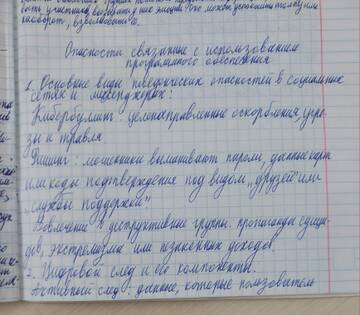 Опасности связанные с использованием
программного обеспечения
1. Основные виды поведенческих опасностей в социальных
сетях и мессенджерах:
Кибербуллинг: целенаправленные оскорбления, угро-
зы и травля.
Фишинг: мошенники выманивают пароли, данные карт
или коды подтверждения под видом "друзей" или
"службы поддержки"
Вовлечение в деструктивные группы: пропаганда суици-
да, экстремизма или
доходов
2. Цифровой след и его компоненты.
Активный след: данные, которые пользователь